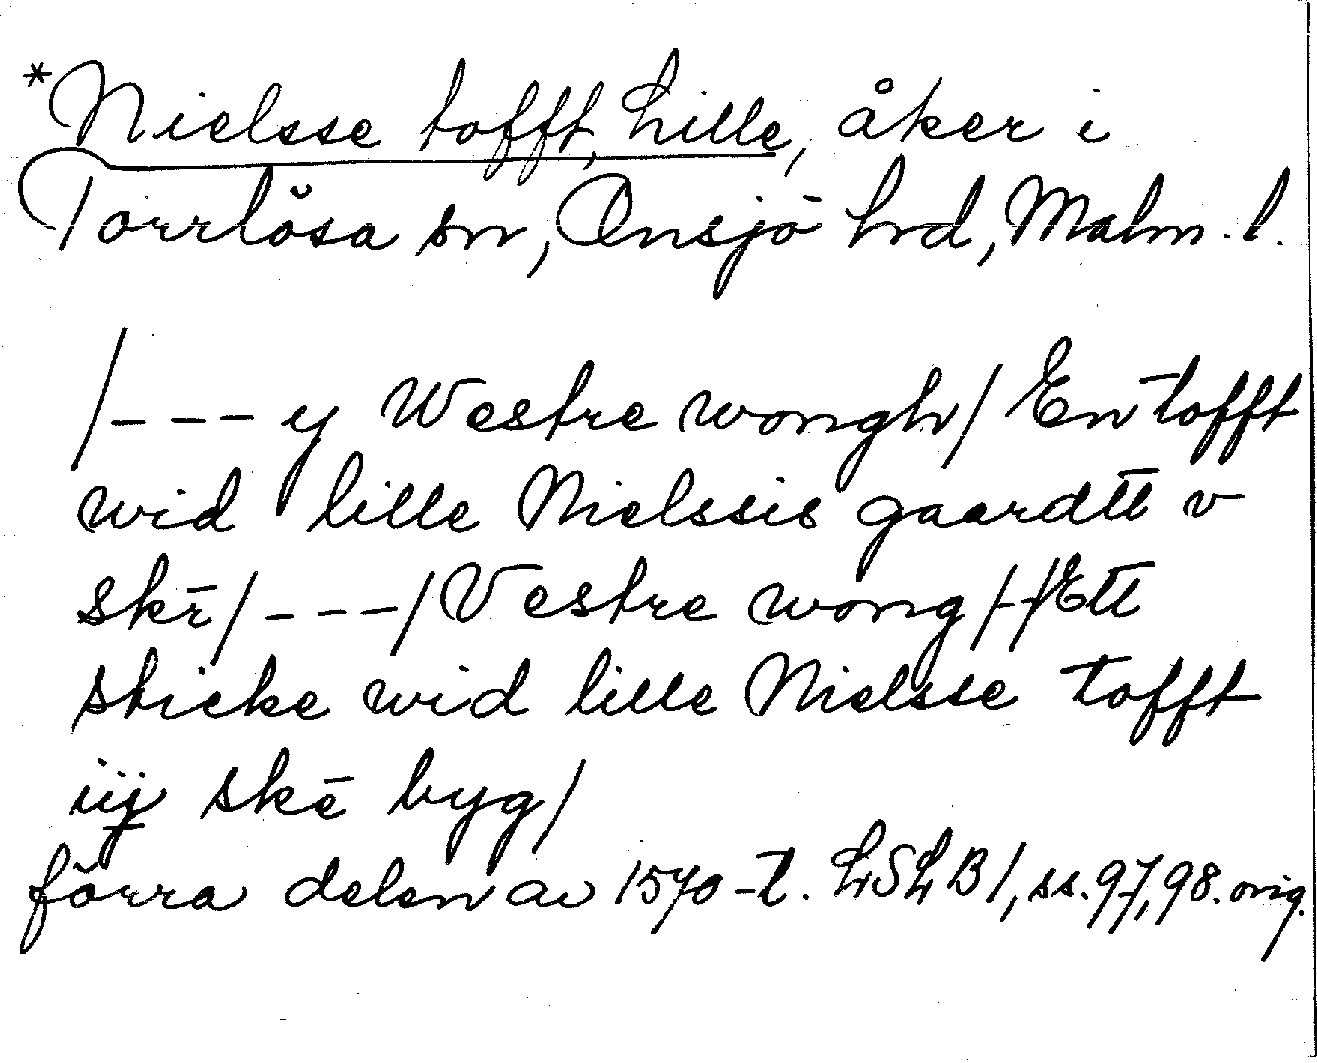 *Nielsse tofft, Lille, åker i
Torrlösa sn, Onsjö hrd, Malm. l.
/--- y Westre wongh/ En tofft
wid lille Nielssis gaardtt v
skē/---/Vestre wong/-/Ett
sticke wid lille Nielsse tofft
iij skē byg/
förra delen av 1570-t. LSLB1, ss. 97, 98. orig.